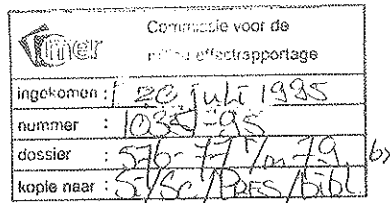 mer Commissie voor de
milieu effectrapportage
ingekomen : 20 juli 1995
nummer : 1035-95
dossier : 576-77 t/m 79 b)
kopie naar : St/Sc/PRES/bibl